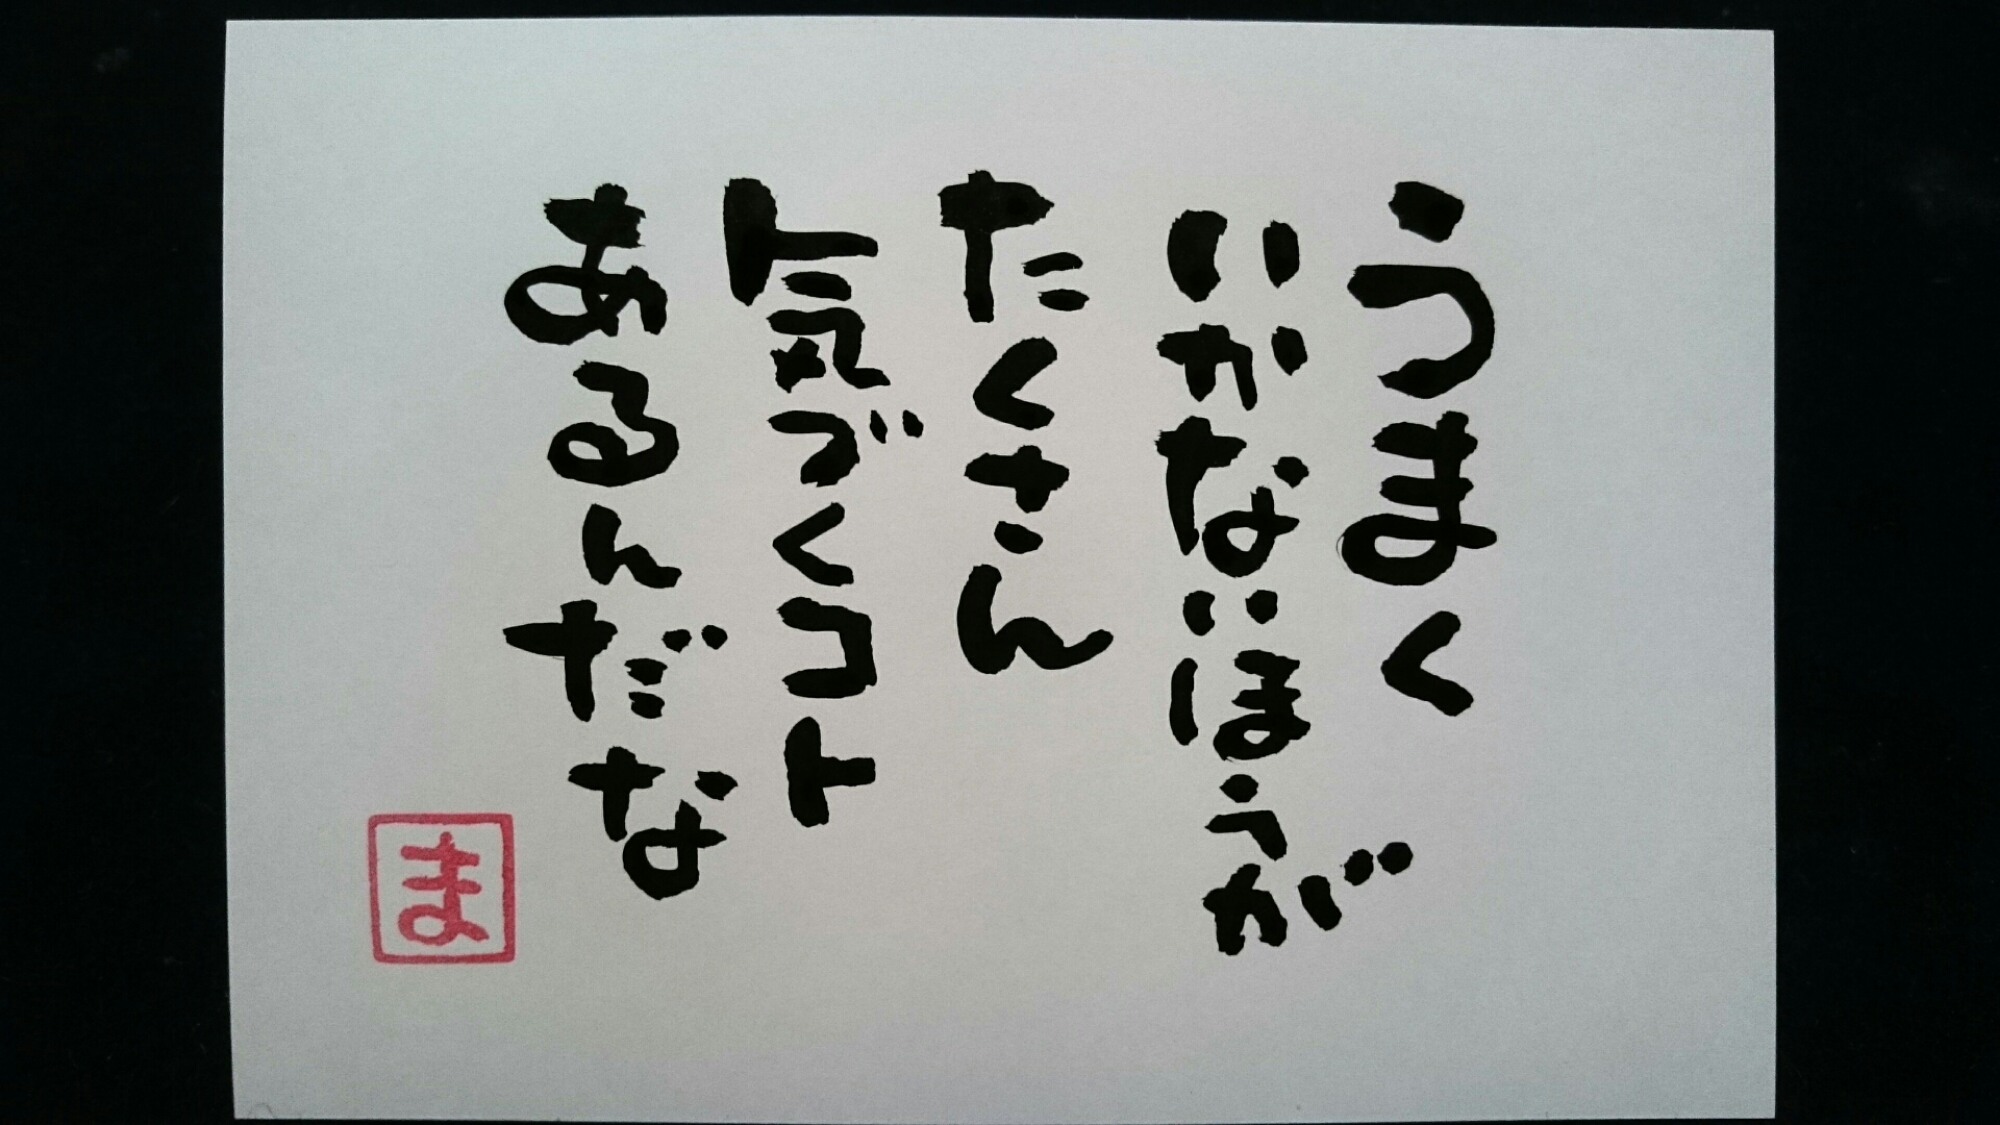 うまく
いかないほうが
たくさん
気づくコト
あるんだな
ま